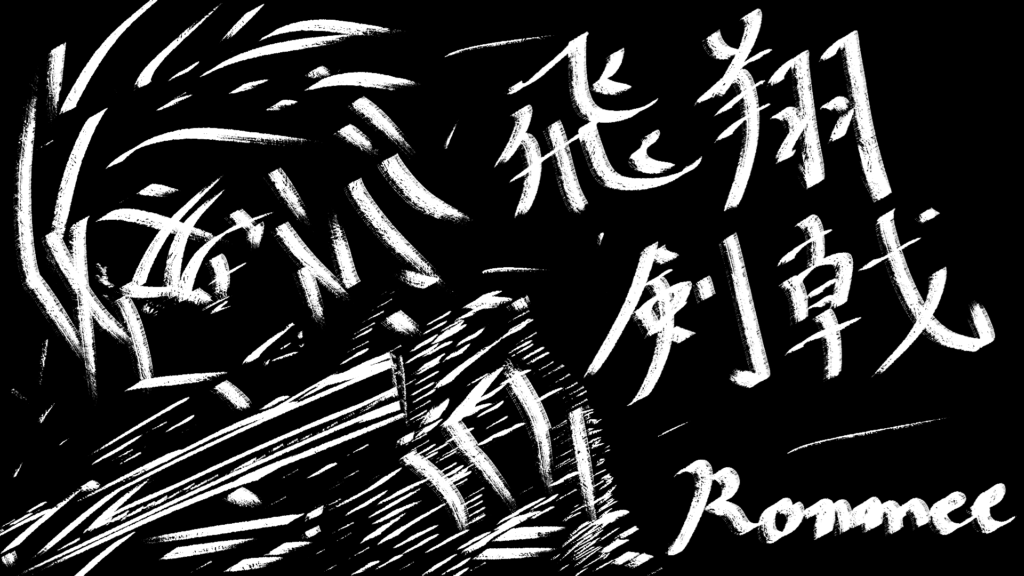 飛翔
剣戟
Ronmee